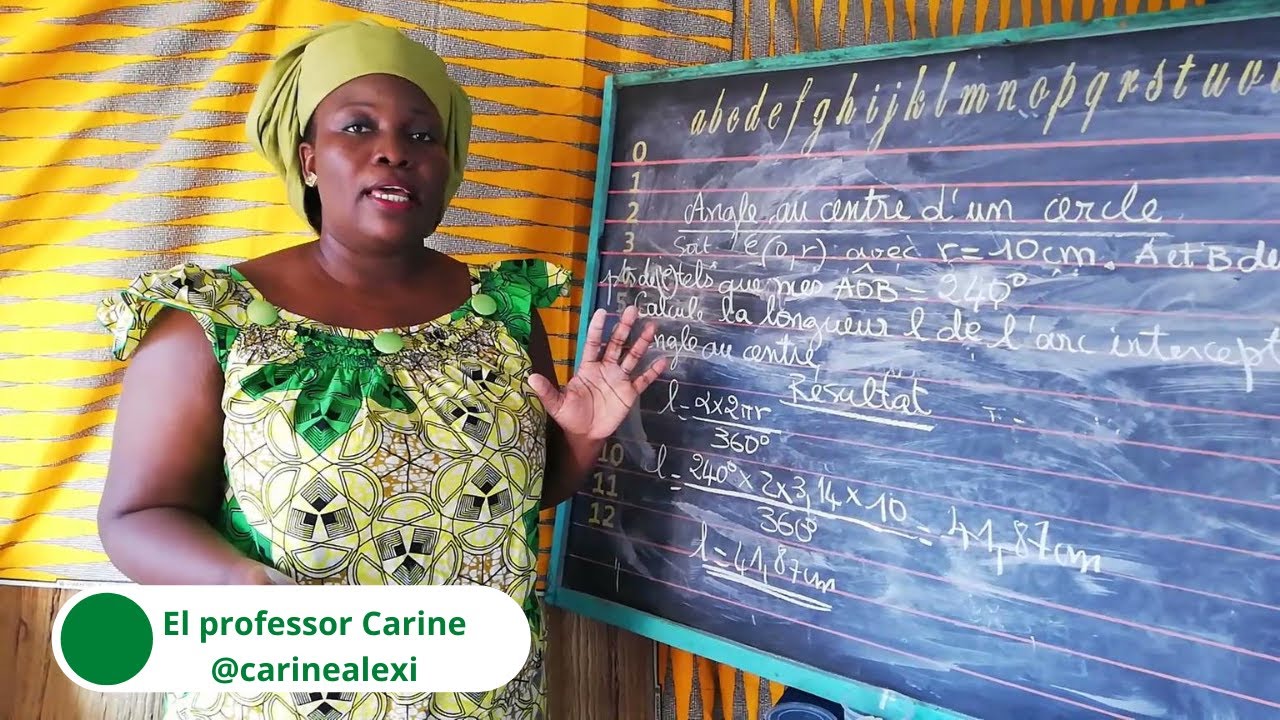 abcdefghijklmnopqrstuv
0
1
2
3
4
5
10
11
12
Angle au centre d'un cercle
Soit C(O,r) avec r=10cm. A et B de
pts de (C) tels que mes AÔB = 240°
Calcule la longueur l de l'arc intercept
angle au centre,
Résultat
l=α×2πr/360°
l=240°×2×3,14×10/360°=41,87cm
l=41,87cm
El professor Carine
@carinealexi